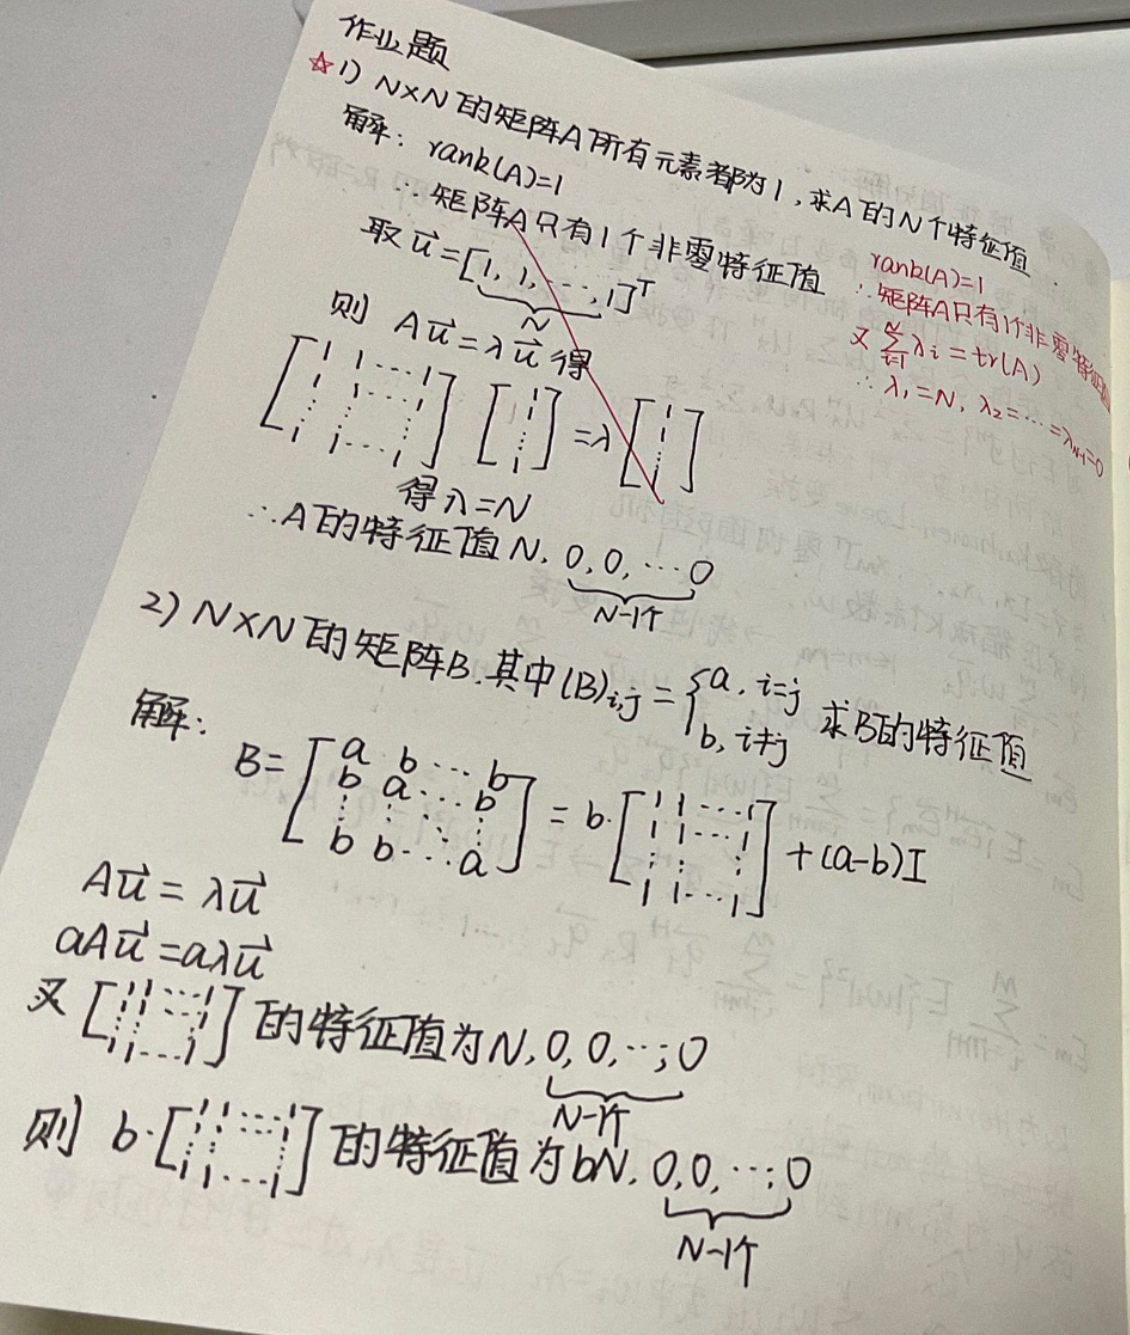 作业题
☆1) N×N的矩阵A所有元素都为1,求A的N个特征值
解: rank(A)=1
∴矩阵A只有1个非零特征值
取 u⃗=[1,1,…,1]ᵀ
N
则 Au⃗=λu⃗ 得
[1 1 … 1
1 1 … 1
⋮ ⋮
1 1 … 1] [1
1
⋮
1] =λ [1
1
⋮
1]
得λ=N
∴A的特征值N, 0,0,…0
N-1个
rank(A)=1
∴矩阵A只有1个非零特征值
又 ∑ᵢ₌₁ᴺ λᵢ=tr(A)
∴λ₁=N, λ₂=…=λN-1=0
2) N×N的矩阵B.其中(B)i,j = { a, i=j
b, i≠j
求B的特征值
解:
B= [a b … b
b a … b
⋮ ⋮ ⋱ ⋮
b b … a] = b· [1 1 … 1
1 1 … 1
⋮ ⋮ ⋮
1 1 … 1] +(a-b)I
Au⃗=λu⃗
aAu⃗=aλu⃗
又 [1 1 … 1
⋮ ⋮ ⋮
1 1 … 1] 的特征值为N, 0,0,…,0
N-1个
则 b· [1 1 … 1
⋮ ⋮
1 1 … 1] 的特征值为bN, 0,0,…,0
N-1个